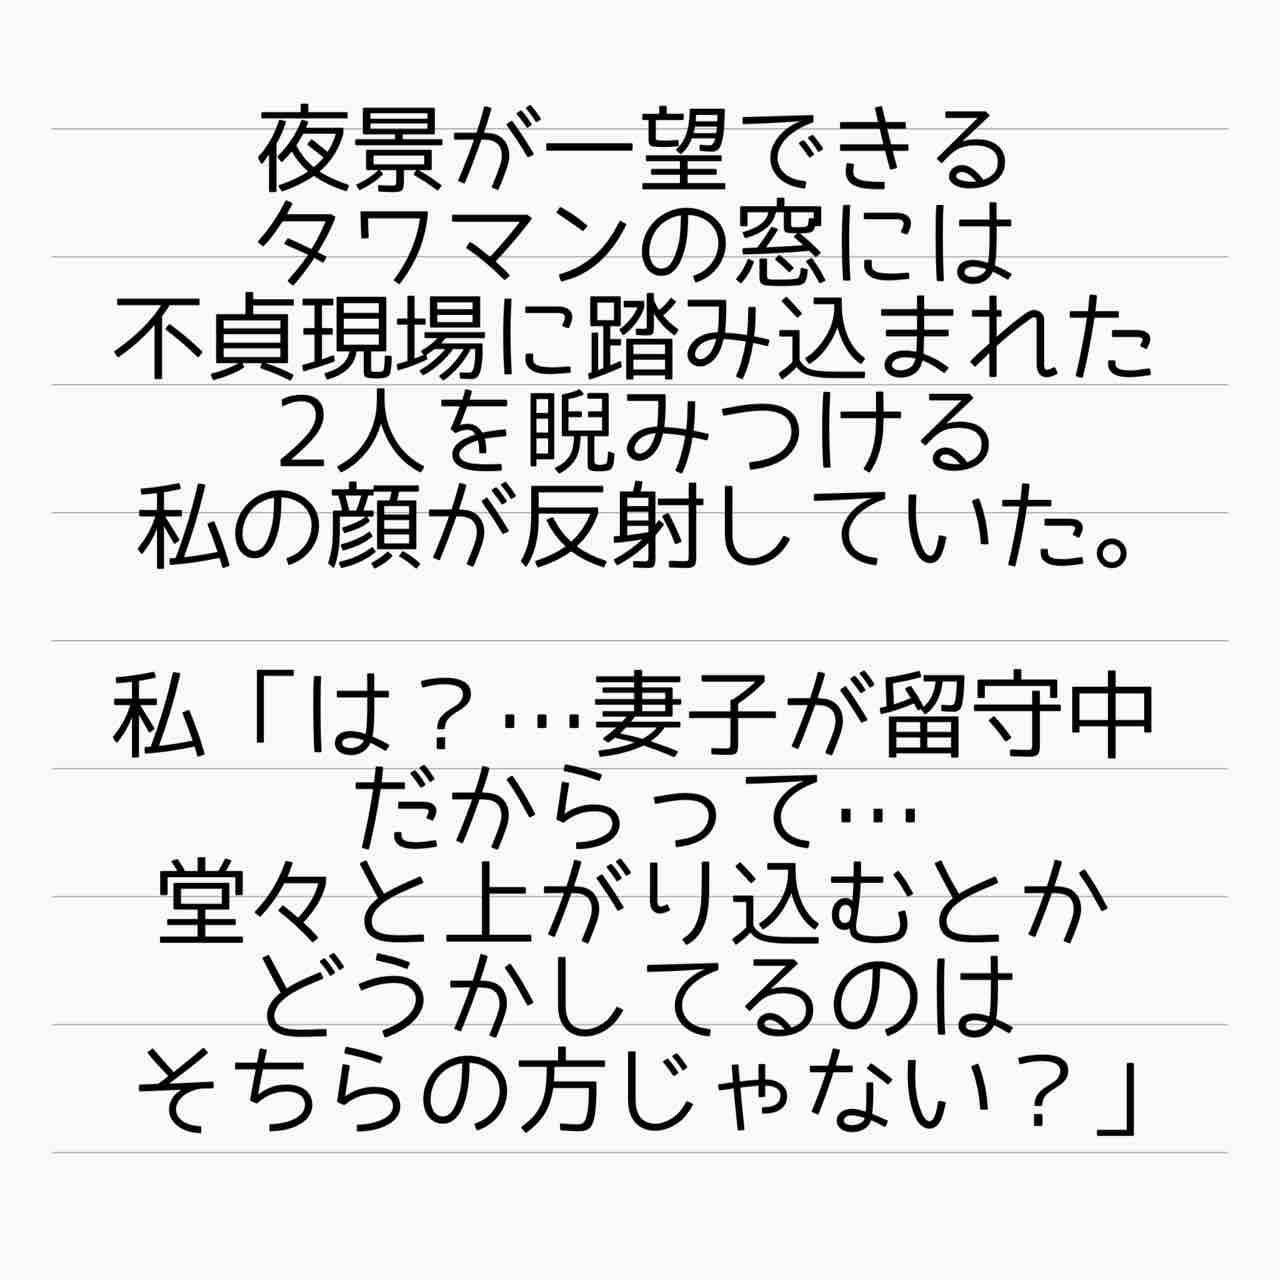 夜景が一望できる
タワマンの窓には
不貞現場に踏み込まれた
2人を睨みつける
私の顔が反射していた。
私「は？…妻子が留守中
だからって…
堂々と上がり込むとか
どうかしてるのは
そちらの方じゃない？」